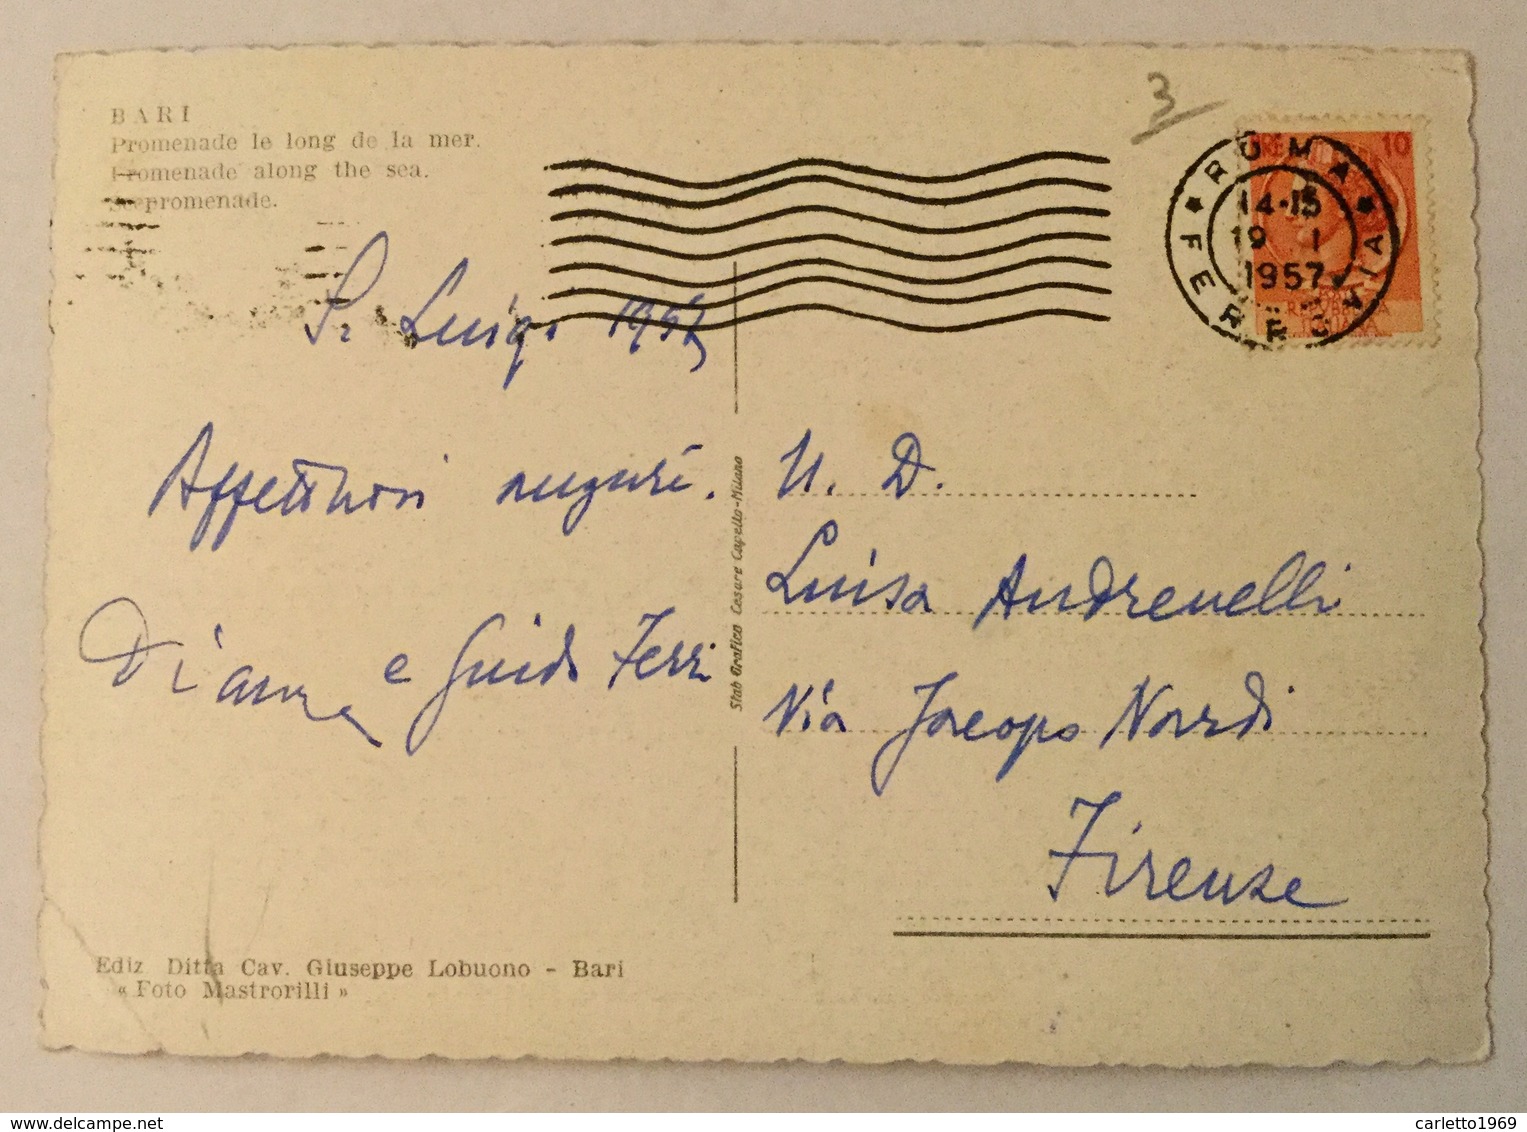 BARI
Promenade le long de la mer.
Promenade along the sea.
promenade.
3
ROMA FERROVIA
14-15
19 I
1957
10
REPUBBLICA
ITALIANA
S. Luigi 1957
Affettuosi auguri.
Diana e Guido Ferri
Stab Grafico Cesare Capello-Milano
N. D.
Luisa Andrenelli
Via Jacopo Nardi
Firenze
Ediz Ditta Cav. Giuseppe Lobuono - Bari
« Foto Mastrorilli »
delcampe.net
carletto1969